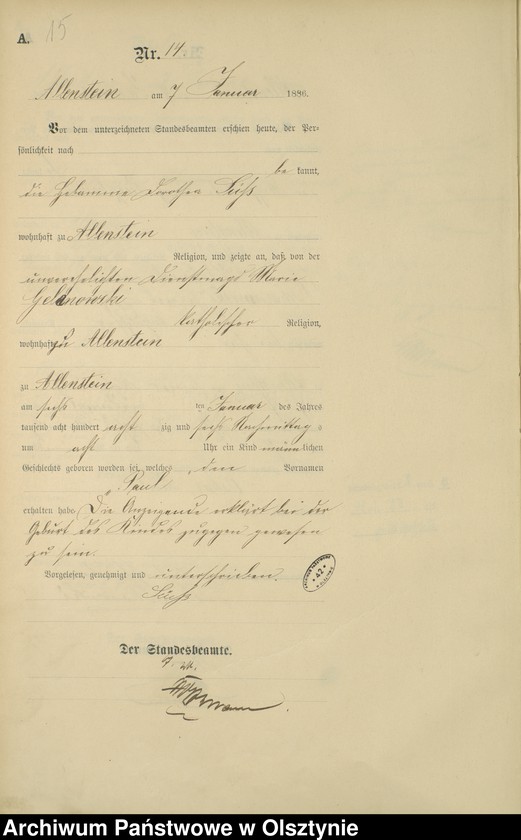 A. 15
Nr. 14.
Allenstein am 7 Januar 1886.
Vor dem unterzeichneten Standesbeamten erschien heute, der Per-
sönlichkeit nach
be kannt,
die Hebamme Dorothea
wohnhaft zu Allenstein
Religion, und zeigte an, daß von der
unverehelichten Dienstmagd Marie
katholischer Religion,
wohnhaft zu Allenstein
zu Allenstein
am sechs ten Januar des Jahres
tausend acht hundert acht zig und sechs Nachmittag s
um acht Uhr ein Kind männlichen
Geschlechts geboren worden sei, welches den Vornamen
Paul
erhalten habe. Die Anzeigende erklärt bei der
Geburt des Kindes zugegen gewesen
zu sein.
Vorgelesen, genehmigt und unterschrieben.
Der Standesbeamte.
Archiwum Państwowe w Olsztynie